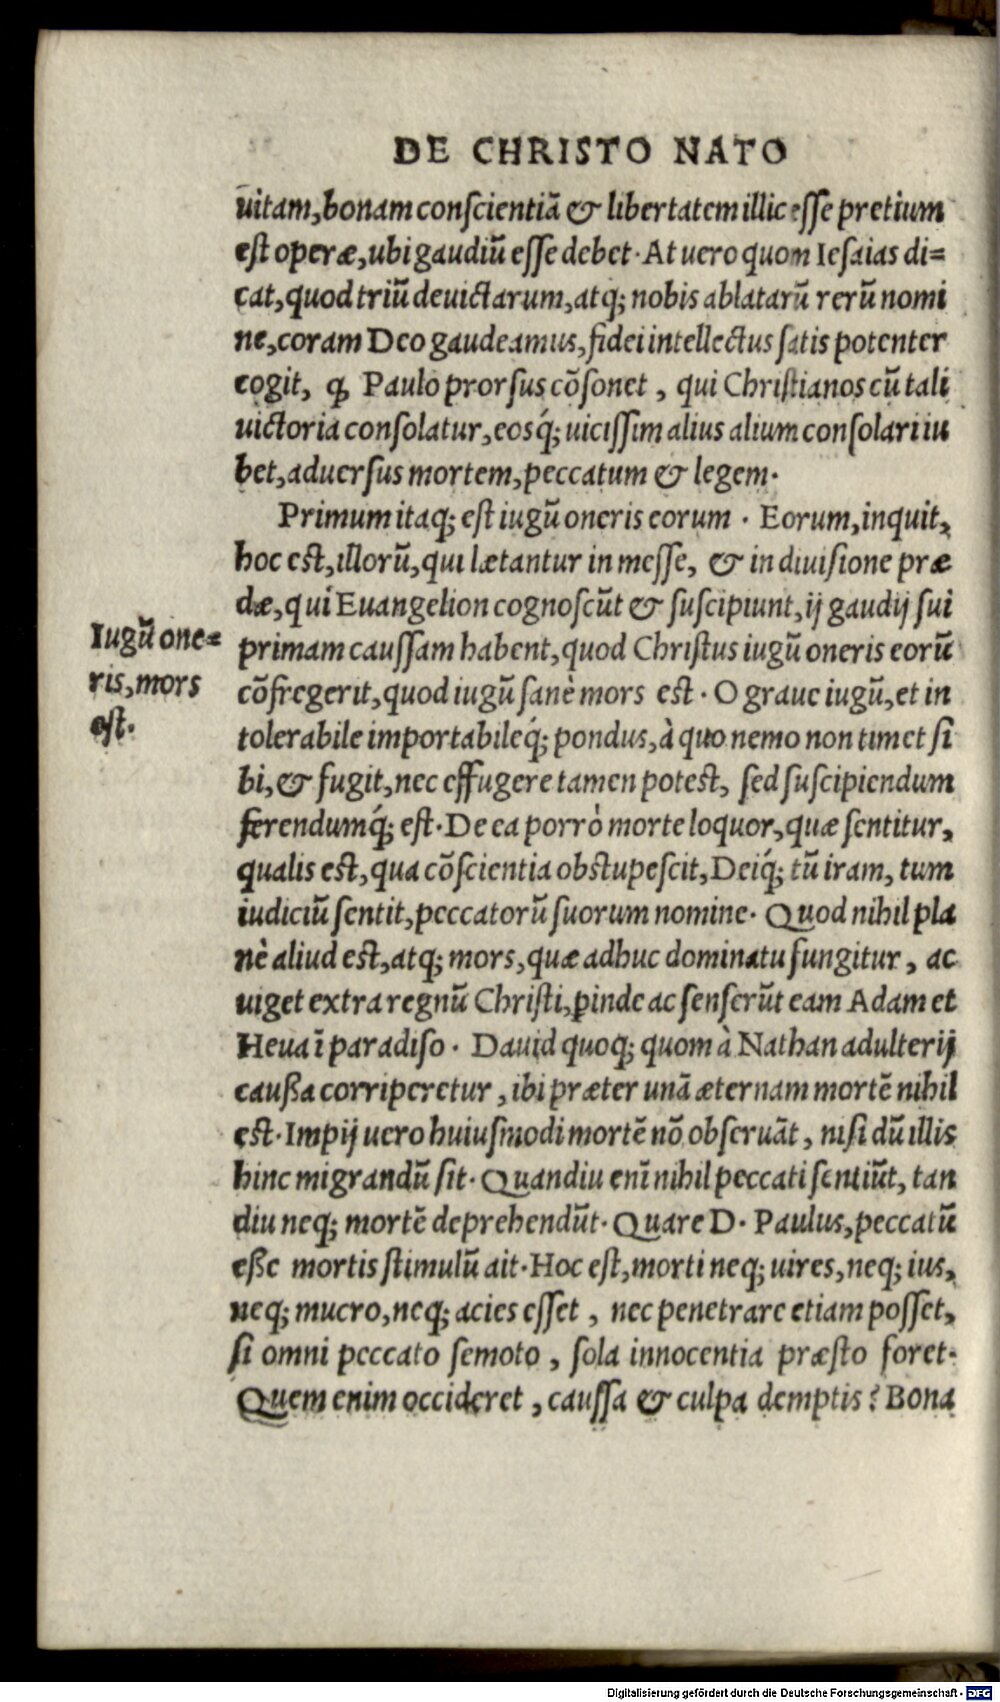 DE CHRISTO NATO
uitam, bonam conſcientiā & libertatem illic eſſe pretium
eſt operæ, ubi gaudiū eſſe debet. At uero quom Ieſaias di=
cat, quod triū deuictarum, atq; nobis ablatarū rerū nomi
ne, coram Deo gaudeamus, fidei intellectus ſatis potenter
cogit, ꝙ Paulo prorſus cōſonet, qui Chriſtianos cū tali
uictoria conſolatur, eosq́; uiciſſim alius alium conſolari iu
bet, aduerſus mortem, peccatum & legem.
Primum itaq; eſt iugū oneris eorum. Eorum, inquit,
hoc eſt, illorū, qui lætantur in meſſe, & in diuiſione præ
dæ, qui Euangelion cognoſcūt & ſuſcipiunt, ij gaudij ſui
Iugū one=
ris, mors
eſt.
primam cauſſam habent, quod Chriſtus iugū oneris eorū
cōfregerit, quod iugū ſanè mors eſt. O graue iugū, et in
tolerabile importabileq́; pondus, à quo nemo non timet ſi
bi, & fugit, nec effugere tamen poteſt, ſed ſuſcipiendum
ferendumq́; eſt. De ea porrò morte loquor, quæ ſentitur,
qualis eſt, qua cōſcientia obſtupeſcit, Deiq́; tū iram, tum
iudiciū ſentit, peccatorū ſuorum nomine. Quod nihil pla
nè aliud eſt, atq; mors, quæ adhuc dominatu fungitur, ac
uiget extra regnū Chriſti, ꝑinde ac ſenſerūt eam Adam et
Heua ī paradiſo. Dauid quoq; quom à Nathan adulterij
cauſſa corriperetur, ibi præter unā æternam mortē nihil
eſt. Impij uero huiuſmodi mortē nō obſeruāt, niſi dū illis
hinc migrandū ſit. Quandiu enī nihil peccati ſentiūt, tan
diu neq; mortē deprehendūt. Quare D. Paulus, peccatū
eſſe mortis ſtimulū ait. Hoc eſt, morti neq; uires, neq; ius,
neq; mucro, neq; acies eſſet, nec penetrare etiam poſſet,
ſi omni peccato ſemoto, ſola innocentia præſto foret.
Quem enim occideret, cauſſa & culpa demptis? Bona
Digitalisierung gefördert durch die Deutsche Forschungsgemeinschaft - DFG